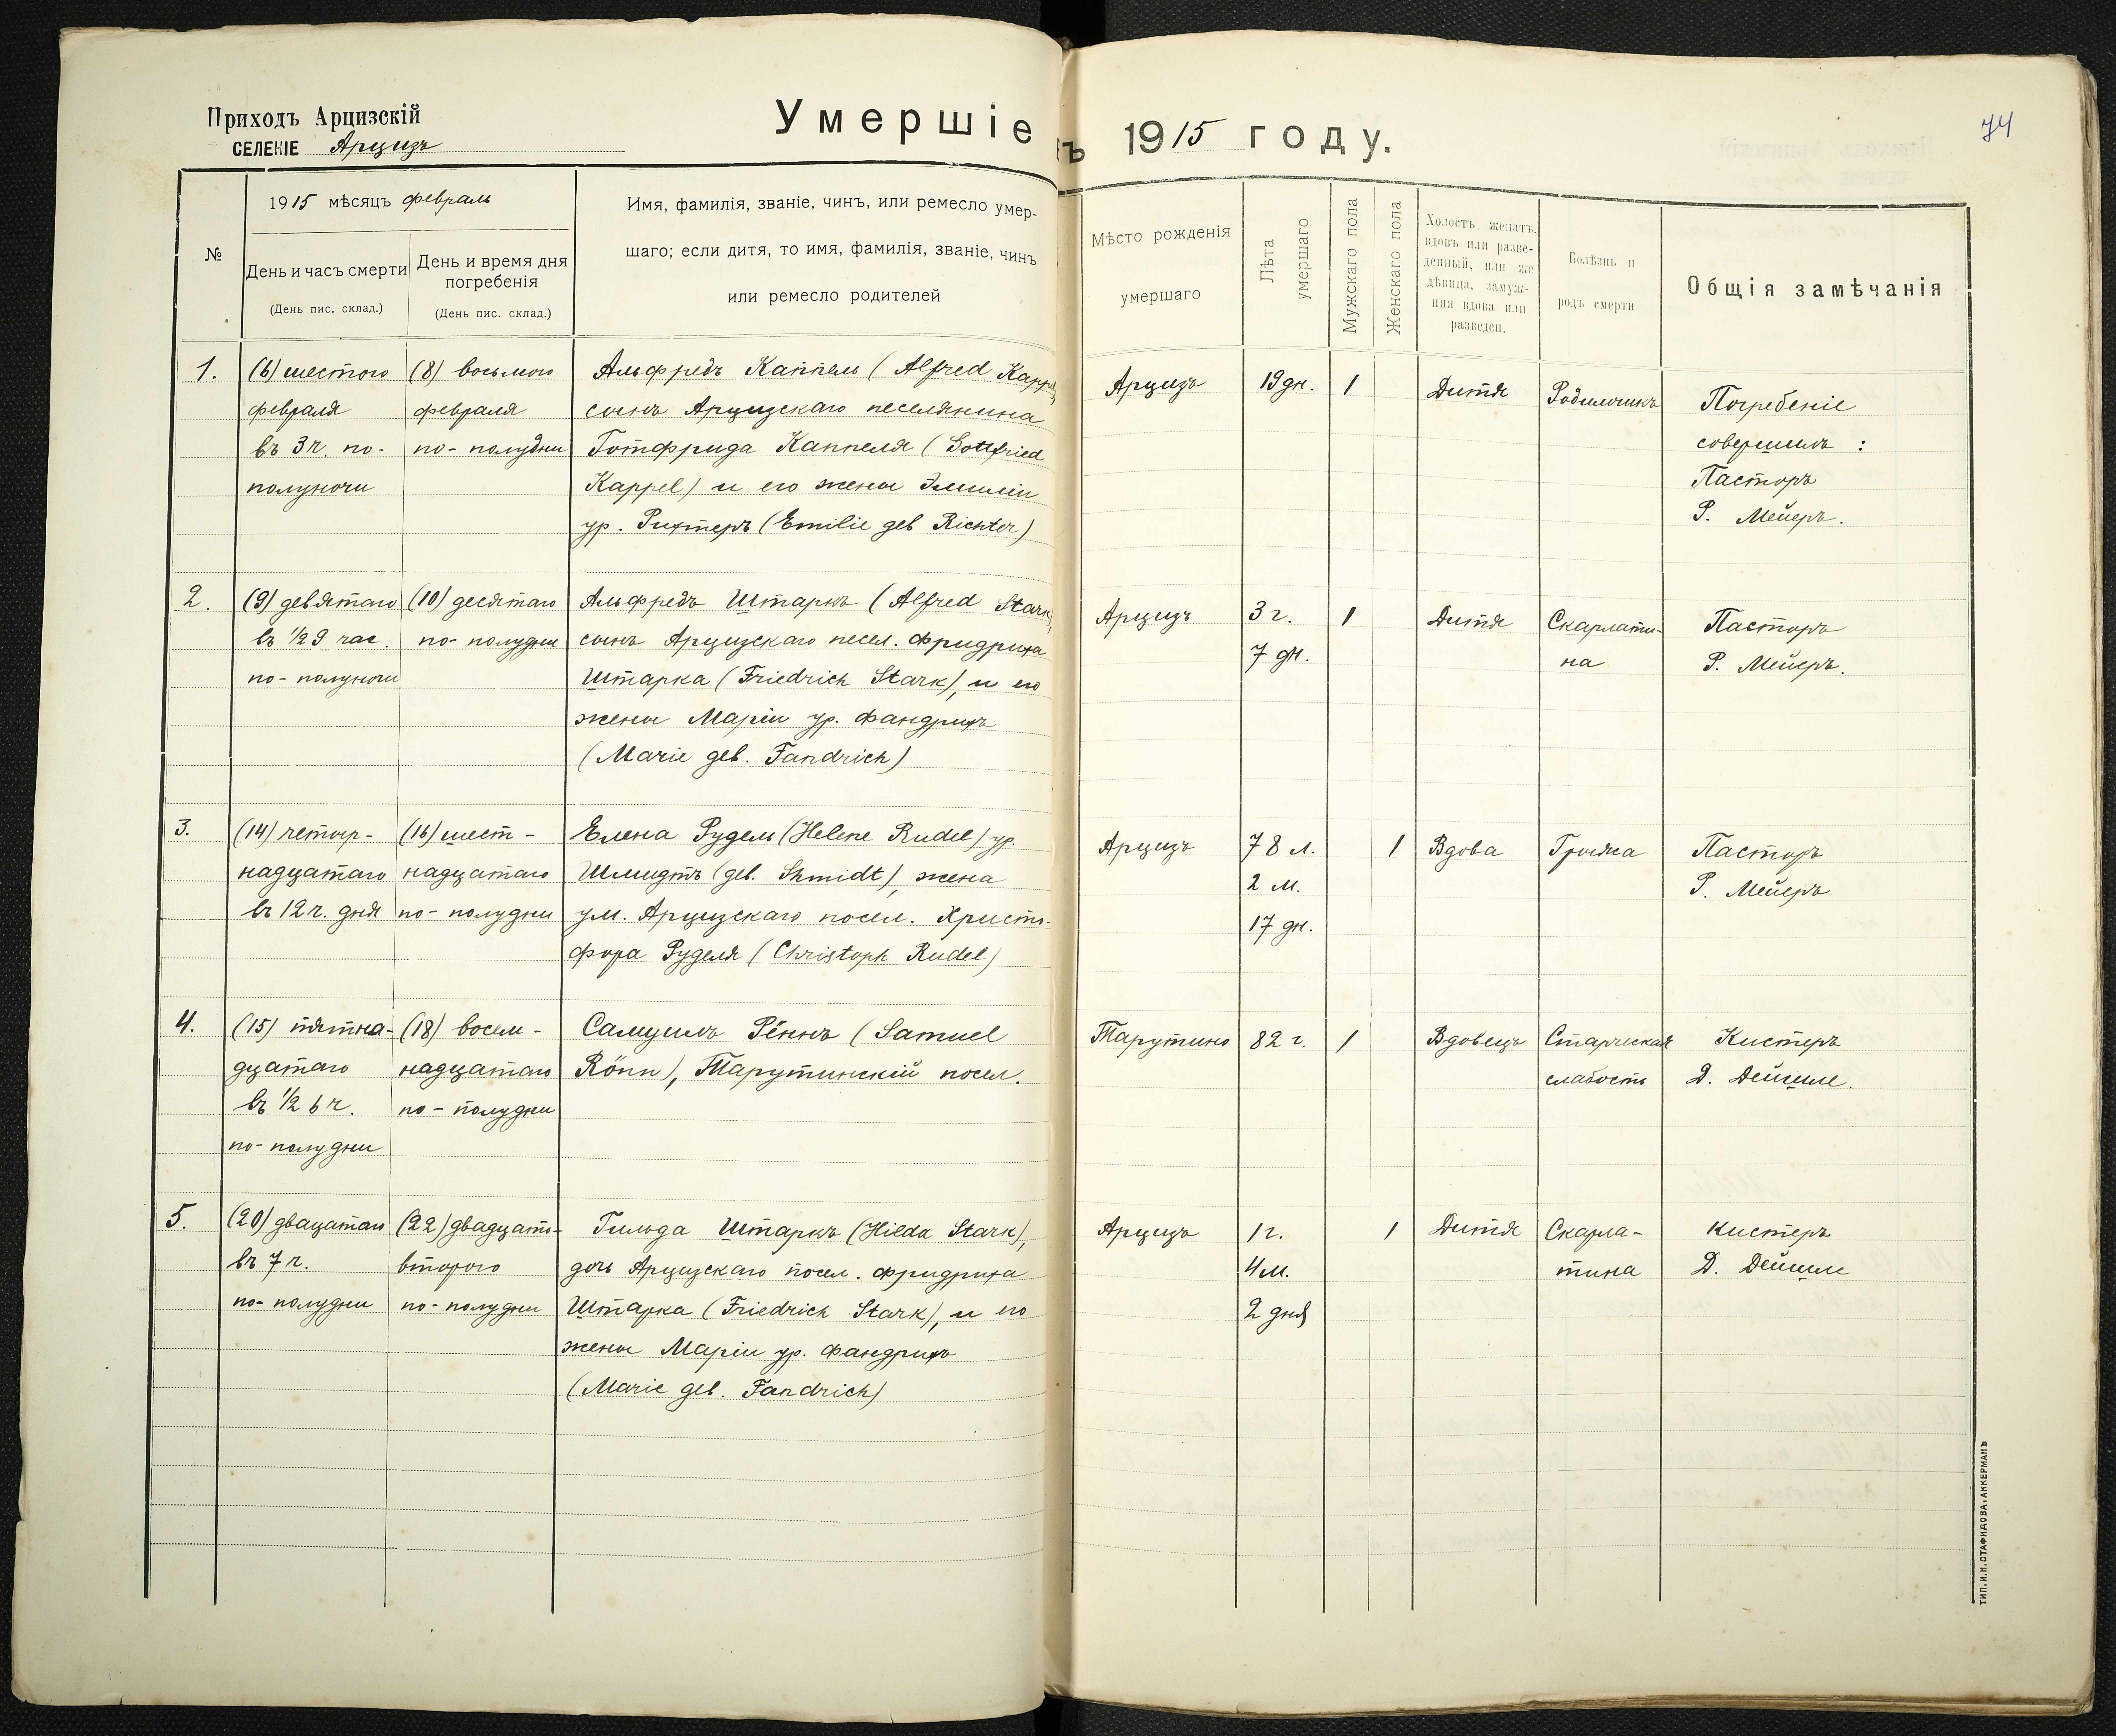 Приходъ Арцизскій
СЕЛЕНІЕ Арцизъ
Умершіе
ъ 1915 году.
74
№
1915 мѣсяцъ февраль
День и часъ смерти
(День пис. склад.)
День и время дня
погребенія
(День пис. склад.)
Имя, фамилія, званіе, чинъ, или ремесло умер-
шаго; если дитя, то имя, фамилія, званіе, чинъ
или ремесло родителей
Мѣсто рожденія
умершаго
Лѣта
умершаго
Мужскаго пола
Женскаго пола
Холостъ, женатъ,
вдовъ или разве-
денный, или же
дѣвица, замуж-
няя вдова или
разведен.
Болѣзнь и
родъ смерти
Общія замѣчанія
1.
(6) шестого
февраля
въ 3 ч. по-
полуночи
(8) восьмого
февраля
по-полудни
Альфредъ Каппель (Alfred Kappel)
сынъ Арцизскаго поселянина
Готфрида Каппеля (Gottfried
Kappel) и его жены Эмиліи
ур. Рихтеръ (Emilie geb Richter)
Арцизъ
19 дн.
1
Дитя
Родимчикъ
Погребеніе
совершилъ :
Пасторъ
Р. Мейеръ.
2.
(9) девятаго
въ ½ 9 час.
по-полуночи
(10) десятаго
по-полудни
Альфредъ Штаркъ (Alfred Stark),
сынъ Арцизскаго посел. Фридриха
Штарка (Friedrich Stark), и его
жены Маріи ур. Фандрихъ
(Marie geb. Fandrich)
Арцизъ
3 г.
7 дн.
1
Дитя
Скарлати-
на
Пасторъ
Р. Мейеръ.
3.
(14) четыр-
надцатаго
въ 12 ч. дня
(16) шест-
надцатаго
по-полудни
Елена Рудель (Helene Rudel) ур.
Шмидтъ (geb. Shmidt), жена
ум. Арцизскаго посел. Христо-
фора Руделя (Christoph Rudel)
Арцизъ
78 л.
2 м.
17 дн.
1
Вдова
Грыжа
Пасторъ
Р. Мейеръ
4.
(15) пятна-
дцатаго
въ ½ 6 ч.
по-полудни
(18) восем-
надцатаго
по-полудни
Самуилъ Рённъ (Samuel
Rönn), Тарутинскій посел.
Тарутино
82 г.
1
Вдовецъ
Старческая
слабость
Кистеръ
Д. Дейшле.
5.
(20) двацатаго
въ 7 ч.
по-полудни
(22) двадцать-
второго
по-полудни
Гильда Штаркъ (Hilda Stark),
дочь Арцизскаго посел. Фридриха
Штарка (Friedrich Stark), и его
жены Маріи ур. Фандрихъ
(Marie geb. Fandrich)
Арцизъ
1 г.
4 м.
2 дня
1
Дитя
Скарла-
тина
Кистеръ
Д. Дейшле
ТИП. И.Н. СТАФИДОВА, АККЕРМАНЪ